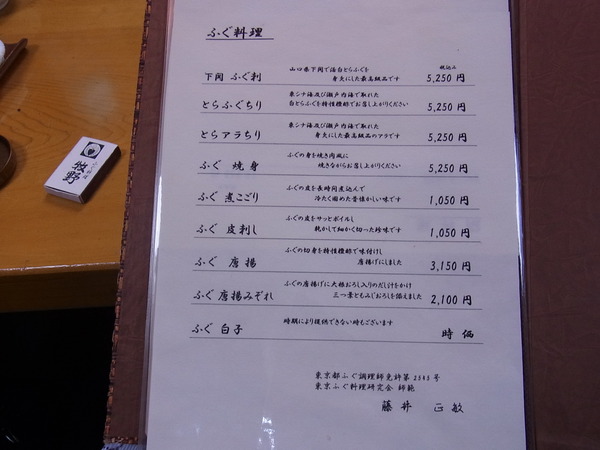 ふぐ料理
税込み
下関 ふぐ刺
山口県下関で活白とらふぐを
身欠にした最高級品です
5,250 円
とらふぐちり
東シナ海及び瀬戸内海で取れた
白とらふぐを特性橙酢でお召し上がりください
5,250 円
とらアラちり
東シナ海及び瀬戸内海で取れた
身欠にした最高級品のアラです
5,250 円
ふぐ 焼身
ふぐの身を焼き肉風に
焼きながらお召し上がりください
5,250 円
ふぐ 煮こごり
ふぐの皮を長時間煮込んで
冷たく固めた昔懐かしい味です
1,050 円
ふぐ 皮刺し
ふぐの皮をサッとボイルし
乾かして細かく切った珍味です
1,050 円
ふぐ 唐揚
ふぐの切身を特性橙酢で味付けし
唐揚げにしました
3,150 円
ふぐ 唐揚みぞれ
ふぐの唐揚げに大根おろし入りのだし汁をかけ
三つ葉ともみじおろしを添えました
2,100 円
ふぐ 白子
時期により提供できない時もございます
時 価
東京都ふぐ調理師免許第2545号
東京ふぐ料理研究会 師範
藤井 正敏
牧野